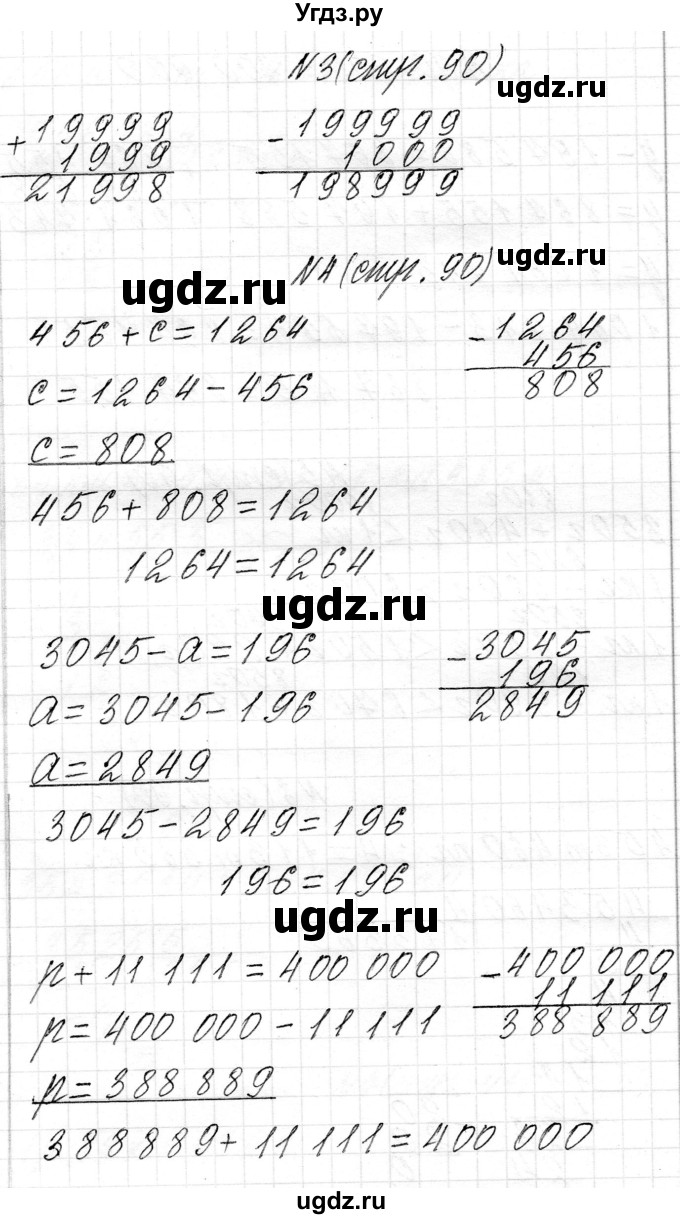 Угдз.ру
N3(стр. 90)
ugdz.ru
+ 19999
1999
21998
- 199999
1000
198999
N4(стр. 90)
ugdz.ru
ugdz.ru
456 + c = 1264
c = 1264 - 456
c = 808
- 1264
456
808
456 + 808 = 1264
1264 = 1264
ugdz.ru
3045 - a = 196
a = 3045 - 196
a = 2849
- 3045
196
2849
3045 - 2849 = 196
196 = 196
ugdz.ru
p + 11 111 = 400 000
p = 400 000 - 11 111
p = 388 889
- 400 000
11 111
388 889
388 889 + 11 111 = 400 000
ugdz.ru